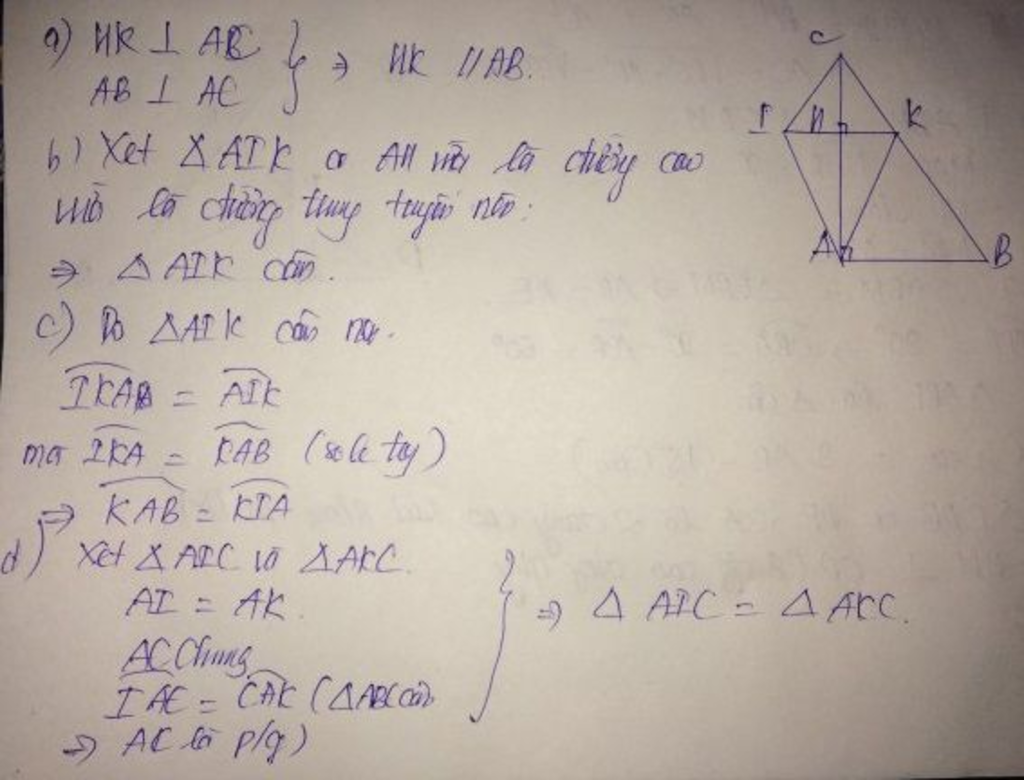 a) HK ⊥ AC } ⇒ HK // AB.
AB ⊥ AC
b) Xét △AIK có AH vừa là đường cao
vừa là đường trung tuyến nên:
⇒ △AIK cân.
c) Do △AIK cân nên.
IKA = AIK
mà IKA = KAB (so le tg)
⇒ KAB = KIA
d) Xét △AIC và △AKC.
AI = AK.
AC Chung
IAC = CAK (△ABC cân
⇒ AC là p/g)
} ⇒ △AIC = △AKC.
C
I H K
A B